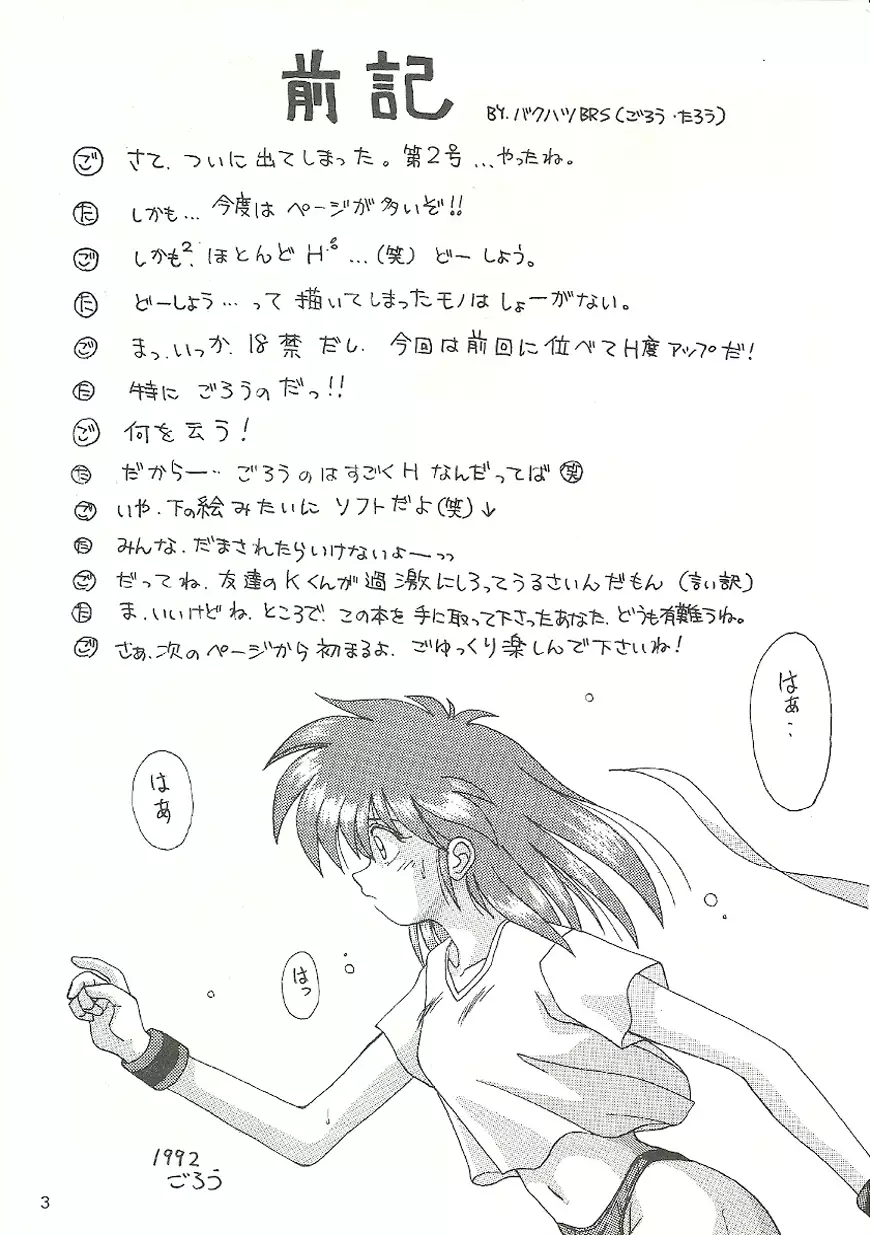 前記
BY. バクハツBRS(ごろう・たろう)
ご さて、ついに出てしまった。第2号…やったね。
た しかも…今度はページが多いぞ!!
ご しかも²、ほとんどH…(笑) どーしよう。
た どーしよう…って描いてしまったモノはしょーがない。
ご まっ、いっか、18禁だし、今回は前回に位べてH度アップだ!
た 特にごろうのだっ!!
ご 何を云う!
た だからー‥ごろうのはすごくHなんだってば 笑
ご いや、下の絵みたいにソフトだよ(笑)↓
た みんな、だまされたらいけないよーっっ
ご だってね、友達のKくんが過激にしろってうるさいんだもん (言い訳)
た ま、いいけどね、ところで、この本を手に取って下さったあなた、どうも有難うね。
ご さぁ、次のページから初まるよ、ごゆっくり楽しんで下さいね!
はぁ…
はあ
はっ
1992
ごろう
3